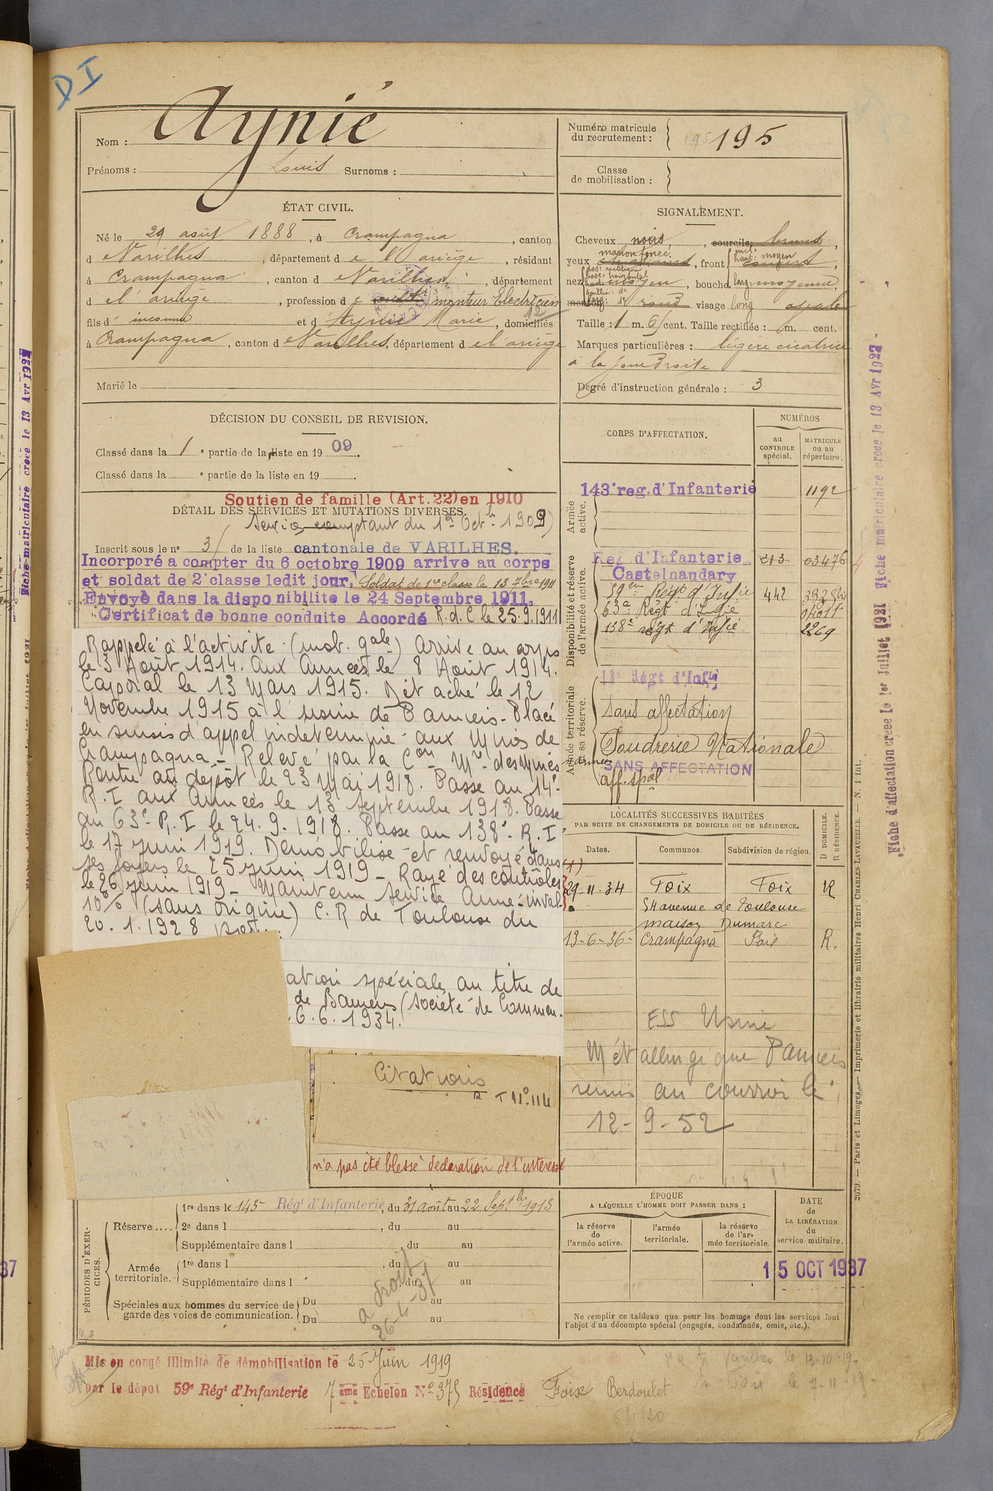 DI
Nom : Aynié
Prénoms : Louis Surnoms :
Numéro matricule du recrutement : 195
Classe de mobilisation :
ÉTAT CIVIL.
Né le 29 août 1888, à Crampagna, canton
d Varilhes, département d e l'ariège, résidant
à Crampagna, canton d e Varilhes, département
d e l'ariège, profession d e monteur Electricien
fils d' inconnu et d Aynié Marie, domiciliés
à Crampagna, canton d e Varilhes, département d e l'ariège
Marié le
SIGNALEMENT.
Cheveux noirs, sourcils bruns,
yeux marron foncé, front moyen
nez moyen, bouche moyenne,
menton rond visage long ovale
Taille : 1 m. 67 cent. Taille rectifiée : m. cent.
Marques particulières : légère cicatrice
à la joue droite
Degré d'instruction générale : 3
DÉCISION DU CONSEIL DE REVISION.
Classé dans la 1e partie de la liste en 1909.
Classé dans la e partie de la liste en 19
Soutien de famille (Art. 22) en 1910
DÉTAIL DES SERVICES ET MUTATIONS DIVERSES.
Service comptant du 1er Octbre 1909
Inscrit sous le n° 3 de la liste cantonale de VARILHES.
Incorporé a compter du 6 octobre 1909 arrive au corps
et soldat de 2e classe ledit jour. Soldat de 1re classe le 15 7bre 1911
Envoyé dans la disponibilite le 24 Septembre 1911.
Certificat de bonne conduite Accordé R.d.C le 25.9.1911
Rappelé à l'activité (mob. gale) Arrivé au corps
le 3 Août 1914. Aux Armées le 8 Août 1914.
Caporal le 13 Mars 1915. Détaché le 12
Novembre 1915 à l'usine de Pamiers. Placé
en sursis d'appel indéterminé aux Mines de
Crampagna. Relevé par la Con Mte des mines
Rentré au dépôt le 23 Mai 1918. Passé au 14e
R.I aux Armées le 13 Septembre 1918. Passé
au 63e R.I le 24.9.1918. Passé au 138e R.I
le 17 juin 1919. Démobilisé et renvoyé dans
ses foyers le 25 juin 1919 - Rayé des contrôles
le 26 juin 1919 - Maintenu service Armé inval.
10% (sans origine) C.R de Toulouse du
20.1.1928
ation spéciale au titre de
de Pamiers (société de Commen.
6.6.1934.
Citations
R T n° 114
n'a pas été blessé déclaration de l'intéressé
CORPS D'AFFECTATION.
NUMÉROS
au CONTROLE spécial.
MATRICULE ou au répertoire.
Armée active.
143e reg. d'Infanterie 1192
Disponibilité et réserve de l'armée active.
Reg d'Infanterie 213 03476
Castelnaudary
59ème Régt d'Infie 442
63e Régt d'Infie
138e régt d'Infie 2269
Armée territoriale et sa réserve.
Régt d'Infie
sans affectation
Poudrerie Nationale
SANS AFFECTATION
aff. spale
LOCALITÉS SUCCESSIVES HABITÉES
PAR SUITE DE CHANGEMENTS DE DOMICILE OU DE RÉSIDENCE.
Dates. Communes. Subdivision de région. D DOMICILE. R RÉSIDENCE.
29 11 34 Foix Foix R
54 avenue de Toulouse
maison Dumarc
19-6-36 Crampagna Foix R.
ESS Usine
Métallurgique Pamiers
remis au courrier le
12-9-52
PÉRIODES D'EXERCICES.
Réserve.... 1re dans le 143e Régt d'Infanterie, du 31 août au 22 Septbre 1913
2e dans l , du au
Supplémentaire dans l du au
Armée territoriale. 1re dans l , du au
Supplémentaire dans l du au
Spéciales aux hommes du service de garde des voies de communication. Du au
Du au
a droit
26-4-37
ÉPOQUE
A LAQUELLE L'HOMME DOIT PASSER DANS :
la réserve de l'armée active.
l'armée territoriale.
la réserve de l'armée territoriale.
DATE DE LA LIBÉRATION du service militaire.
15 OCT 1937
Ne remplir ce tableau que pour les hommes dont les services font l'objet d'un décompte spécial (engagés, condamnés, omis, etc.).
Mis en congé illimité de démobilisation le 25 Juin 1919
par le dépot 59e Régt d'Infanterie 7ème Echelon N° 375 Résidence Foix Berdoulet
Fiche d'affectation creee le 1er Juillet 1921 Fiche matriculaire creee le 13 Avr 1927
Fiche matriculaire creee le 13 Avr 1927
2079. — Paris et Limoges. — Imprimerie et librairie militaires Henri CHARLES-LAVAUZELLE. — N. 1 int.